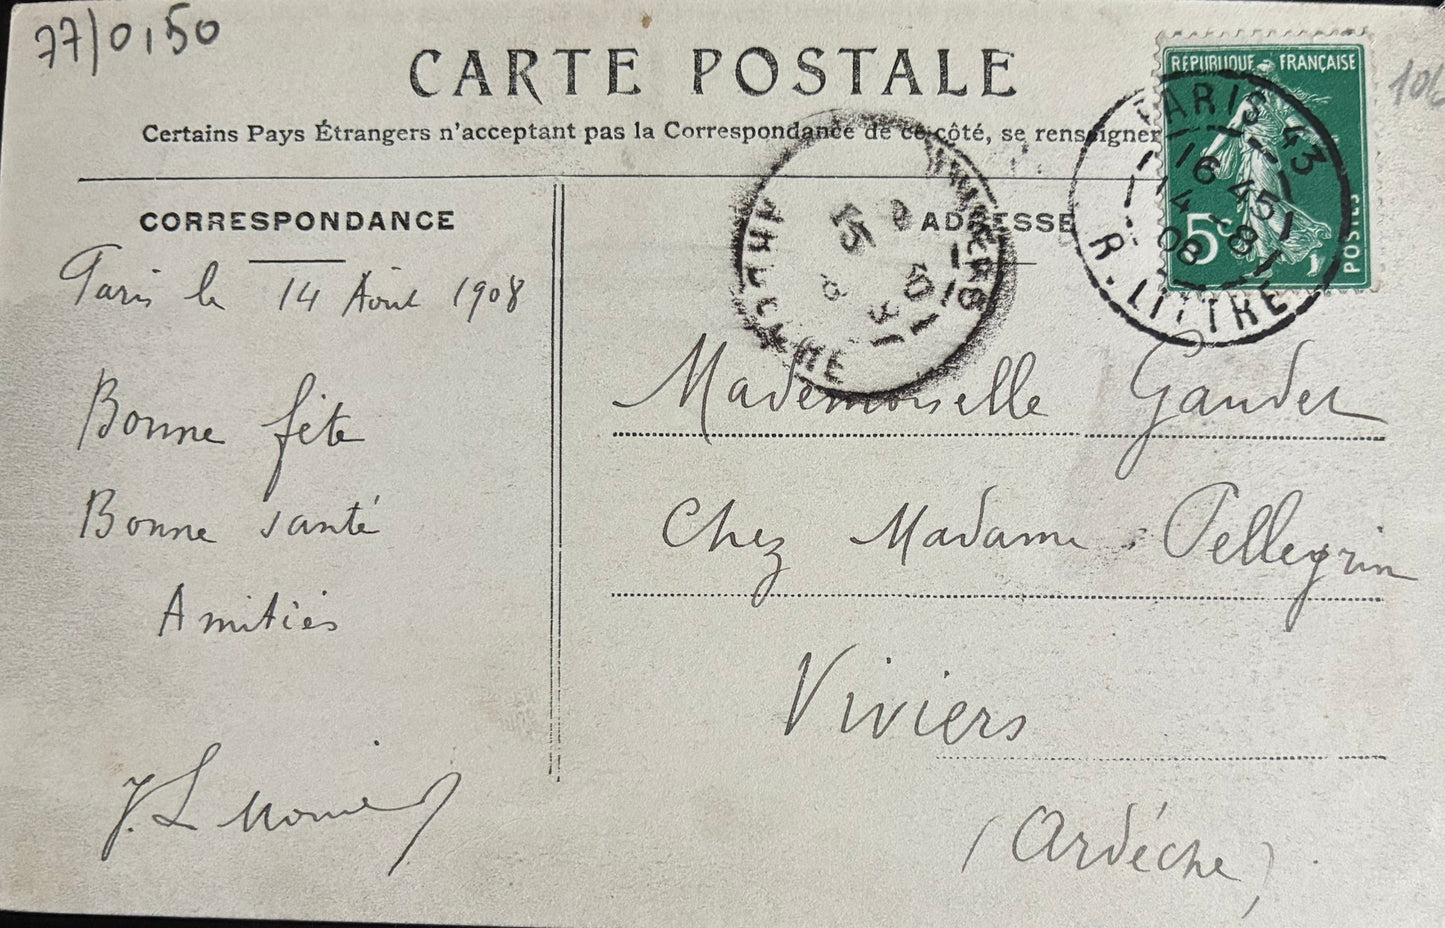 77/0,50
CARTE POSTALE
Certains Pays Étrangers n'acceptant pas la Correspondance de ce côté, se renseigner
CORRESPONDANCE
ADRESSE
RÉPUBLIQUE FRANÇAISE
5c
POSTES
PARIS 43
16 45
14 - 8
08
R. LITTRE
VIVIERS
15
ARDECHE
Paris le 14 Août 1908
Bonne fête
Bonne santé
Amitiés
J. L
Mademoiselle Gaudet
Chez Madame Pellegrin
Viviers
(Ardéche)